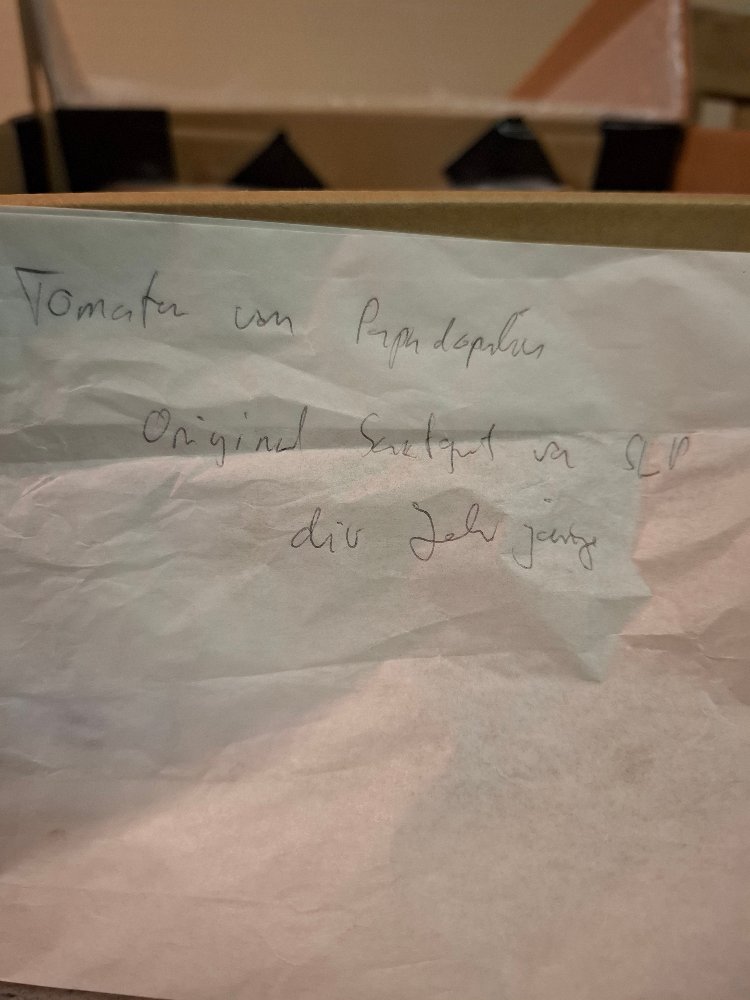 Tomaten von Papadopulus
Original Saatgut von SLP
div Jahrgänge